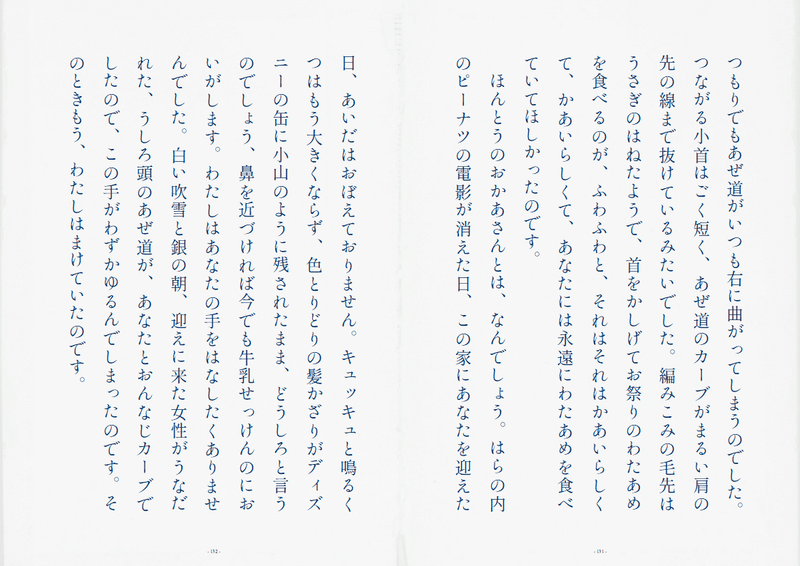 つもりでもあぜ道がいつも右に曲がってしまうのでした。
つながる小首はごく短く、あぜ道のカーブがまるい肩の
先の線まで抜けているみたいでした。編みこみの毛先は
うさぎのはねたようで、首をかしげてお祭りのわたあめ
を食べるのが、ふわふわと、それはそれはかあいらしく
て、かあいらしくて、あなたには永遠にわたあめを食べ
ていてほしかったのです。
ほんとうのおかあさんとは、なんでしょう。はらの内
のピーナツの電影が消えた日、この家にあなたを迎えた
- 151 -
日、あいだはおぼえておりません。キュッキュと鳴るく
つはもう大きくならず、色とりどりの髪かざりがディズ
ニーの缶に小山のように残されたまま、どうしろと言う
のでしょう、鼻を近づければ今でも牛乳せっけんのにお
いがします。わたしはあなたの手をはなしたくありませ
んでした。白い吹雪と銀の朝、迎えに来た女性がうなだ
れた、うしろ頭のあぜ道が、あなたとおんなじカーブで
したので、この手がわずかゆるんでしまったのです。そ
のときもう、わたしはまけていたのです。
- 152 -